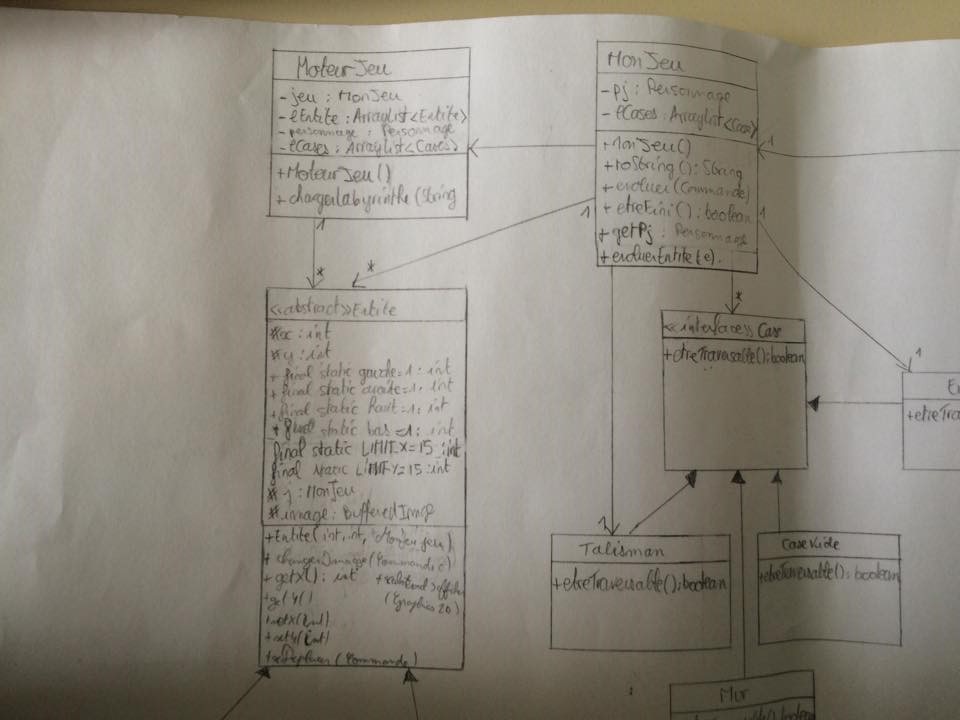 MoteurJeu
- jeu : MonJeu
- lEntite : ArrayList<Entite>
- personnage : Personnage
- lCases : ArrayList<Cases>
+ MoteurJeu()
+ chargerLabyrinthe (String
1
*
*
MonJeu
- pj : Personnage
- lCases : ArrayList<Case>
+ MonJeu()
+ toString() : String
+ evoluer (Commande)
+ etreFini() : boolean
+ getPj : Personnage
+ evoluerEntite(e).
1
1
1
*
1
1
<<abstract>> Entite
# x : int
# y : int
+ final static gauche=1 : int
+ final static droite=1 : int
+ final static haut=1 : int
+ final static bas=1 : int
final static LIMIT_X=15 : int
final static LIMIT_Y=15 : int
# j : MonJeu
# image : BufferedImage
+ Entite (int, int, MonJeu jeu)
+ changer (Commande c)
+ getX() : int
(Graphics2D)
+ setX(int)
+ setY(int)
+ seDeplacer (Commande)
<<interface>> Case
+ etreTraversable() : boolean
+ etreTra
Talisman
+ etreTraversable() : boolean
CaseVide
+ etreTraversable() : boolean
Mur
boolean